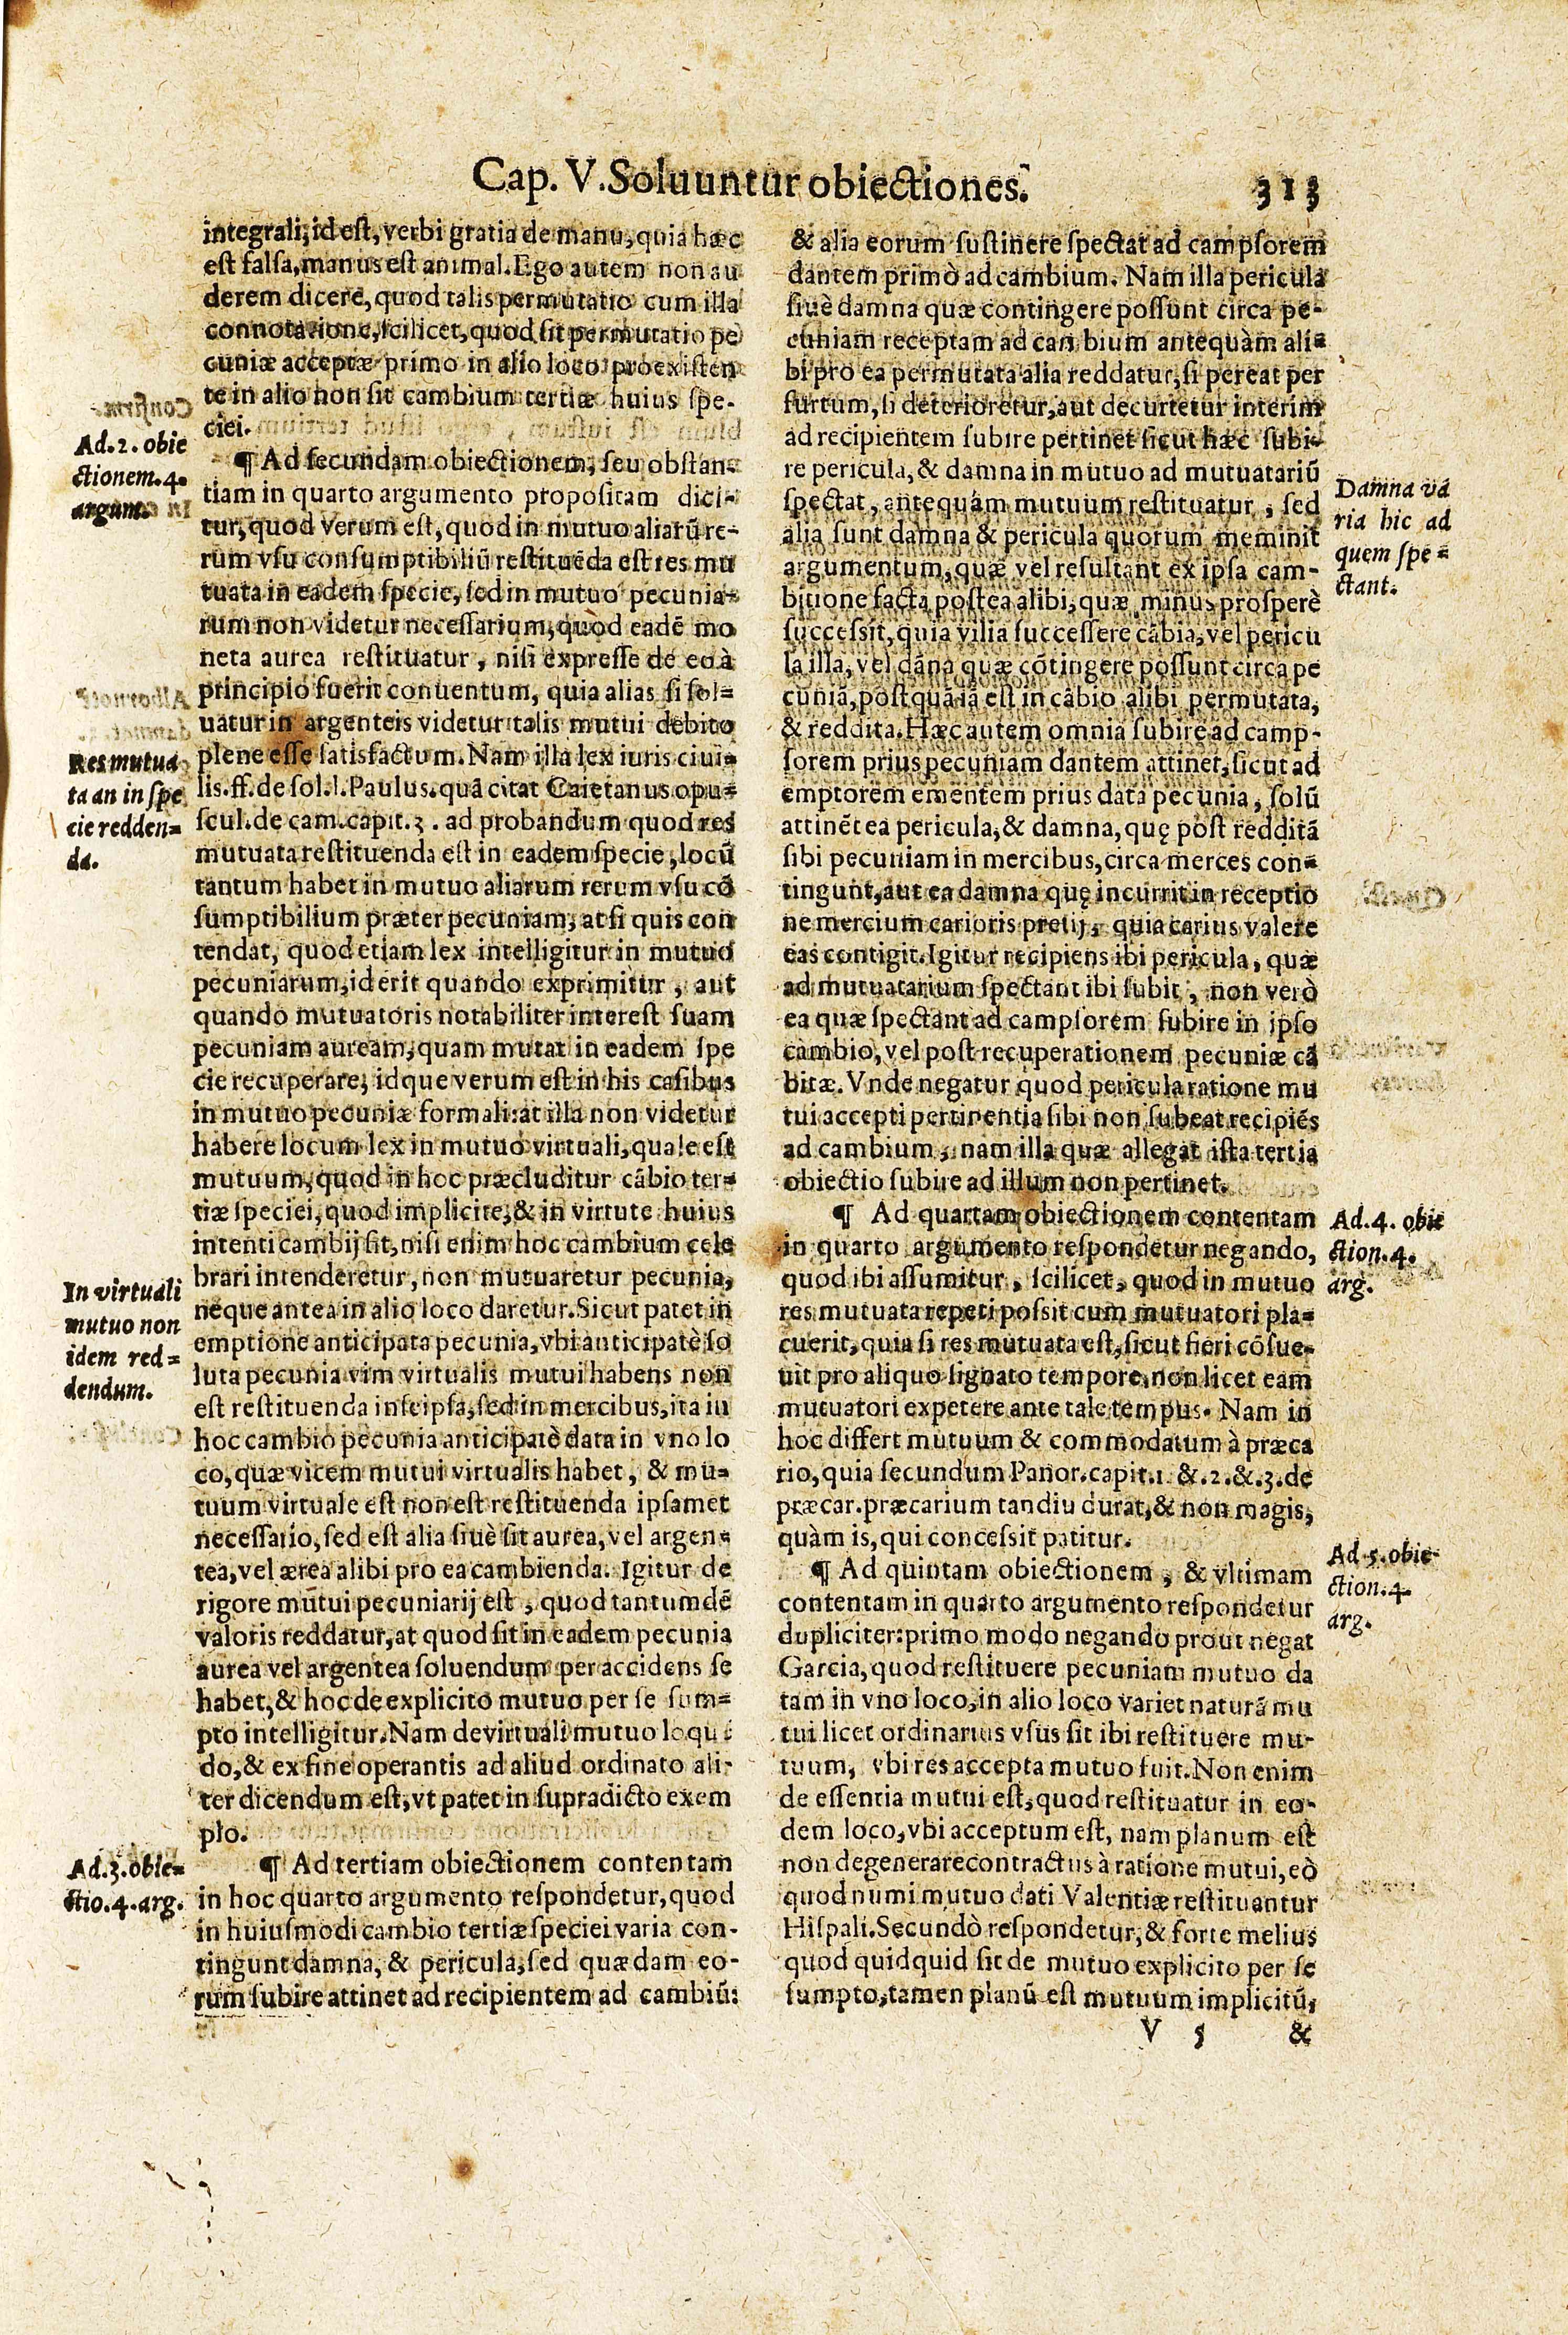 Cap. V. Soluuntur obiectiones. 313
integrali, id est, verbi gratia de manu, quia hæc
est falsa, manus est animal. Ego autem non au
derem dicere, quod talis permutatio cum illa
connotatione, scilicet, quod sit permutatio pe
cuniæ acceptæ primo in alio loco pro existen
te in alio non sit cambium tertiæ huius spe-
ciei.
Ad. 2. obie
ctionem. 4.
argum.
¶ Ad secundam obiectionem, seu obstan-
tiam in quarto argumento propositam dici-
tur, quod verum est, quod in mutuo aliarũ re-
rum vsu consumptibiliũ restituẽda est res mu
tuata in eadem specie, sed in mutuo pecunia-
rum non videtur necessarium, quòd eadẽ mo
neta aurea restituatur, nisi expresse de eo à
principio fuerit conuentum, quia alias si sol-
uatur in argenteis videtur talis mutui debito
plene esse satisfactum. Nam illa lex iuris ciui-
Res mutua
ta an in spe
cie redden-
da.
lis. ff. de sol. l. Paulus. quã citat Caietanus opu-
scul. de cam. capit. 3. ad probandum quod res
mutuata restituenda est in eadem specie, locũ
tantum habet in mutuo aliarum rerum vsu cõ
sumptibilium præter pecuniam, at si quis con
tendat, quod etiam lex intelligitur in mutuo
pecuniarum, id erit quando exprimitur, aut
quando mutuatoris notabiliter interest suam
pecuniam auream, quam mutat in eadem spe
cie recuperare, idque verum est in his casibus
in mutuo pecuniæ formali: at illa non videtur
habere locum lex in mutuo virtuali, quale est
mutuum, quod in hoc præcluditur cãbio ter-
tiæ speciei, quod implicite, & in virtute huius
intenti cambij fit, nisi enim hoc cambium cele
brari intenderetur, non mutuaretur pecunia,
In virtuali
mutuo non
idem red-
dendum.
neque antea in alio loco daretur. Sicut patet in
emptione anticipata pecunia, vbi anticipatè so
luta pecunia vim virtualis mutui habens non
est restituenda in seipsa, sed in mercibus, ita in
hoc cambio pecunia anticipatè data in vno lo
co, quæ vicem mutui virtualis habet, & mu-
tuum virtuale est non est restituenda ipsamet
necessario, sed est alia siuè sit aurea, vel argen-
tea, vel ærea alibi pro ea cambienda. Igitur de
rigore mutui pecuniarij est, quod tantumdẽ
valoris reddatur, at quod sit in eadem pecunia
aurea vel argentea soluendum per accidens se
habet, & hoc de explicito mutuo per se sum-
pto intelligitur. Nam de virtuali mutuo loquẽ
do, & ex fine operantis ad aliud ordinato ali-
ter dicendum est, vt patet in supradicto exem
plo.
Ad. 3. obie-
ctio. 4. arg.
¶ Ad tertiam obiectionem contentam
in hoc quarto argumento respondetur, quod
in huiusmodi cambio tertiæ speciei varia con-
tingunt damna, & pericula, sed quædam eo-
rum subire attinet ad recipientem ad cambiũ:
& alia eorum sustinere spectat ad campsorem
dantem primò ad cambium. Nam illa pericula
siuè damna quæ contingere possunt circa pe-
cuniam receptam ad cambium antequàm ali-
bi pro ea permutata alia reddatur, si pereat per
furtum, si deterioretur, aut decurtetur interim
ad recipientem subire pertinet sicut hæc subi-
re pericula, & damna in mutuo ad mutuatariũ
Damna va
ria hic ad
quem spe-
ctant.
spectat, antequàm mutuum restituatur, sed
alia sunt damna & pericula quorum meminit
argumentum, quæ vel resultant ex ipsa cam-
bitione facta postea alibi, quæ minus prosperè
successit, quia vilia successere cãbia, vel pericu
la illa, vel dãna quæ cõtingere possunt circa pe
cuniã, postquã iã est in cãbio alibi permutata,
& reddita. Hæc autem omnia subire ad camp-
sorem prius pecuniam dantem attinet, sicut ad
emptorem ementem prius data pecunia, solũ
attinẽt ea pericula, & damna, quę post redditã
sibi pecuniam in mercibus, circa merces con-
tingunt, aut ea damna quę incurrit in receptio
ne mercium carioris pretij, quia carius valere
eas contigit. Igitur recipiens ibi pericula, quæ
ad mutuatarium spectant ibi subit, non verò
ea quæ spectant ad campsorem subire in ipso
cambio, vel post recuperationem pecuniæ cã
bitæ. Vnde negatur quod pericula ratione mu
tui accepti pertinentia sibi non subeat recipiẽs
ad cambium, nam illa quæ allegat ista tertia
obiectio subire ad illum non pertinet.
Ad. 4. obie
ction. 4.
arg.
¶ Ad quartam obiectionem contentam
in quarto argumento respondetur negando,
quod ibi assumitur, scilicet, quod in mutuo
res mutuata repeti possit cum mutuatori pla-
cuerit, quia si res mutuata est, sicut fieri cõsue-
uit pro aliquo signato tempore, non licet eam
mutuatori expetere ante tale tempus. Nam in
hoc differt mutuum & commodatum à præca
rio, quia secundum Panor. capit. 1. &. 2. &. 3. de
præcar. præcarium tandiu durat, & non magis,
quàm is, qui concessit patitur.
Ad. 5. obie-
ction. 4.
arg.
¶ Ad quintam obiectionem, & vltimam
contentam in quarto argumento respondetur
dupliciter: primo modo negando prout negat
Garcia, quod restituere pecuniam mutuo da
tam in vno loco, in alio loco variet naturã mu
tui licet ordinarius vsus sit ibi restituere mu-
tuum, vbi res accepta mutuo fuit. Non enim
de essentia mutui est, quod restituatur in eo-
dem loco, vbi acceptum est, nam planum est
non degenerare contractus à ratione mutui, eò
quod numi mutuo dati Valentiæ restituantur
Hispali. Secundò respondetur, & forte melius
quod quidquid sit de mutuo explicito per se
sumpto, tamen planũ est mutuum implicitũ,
V 5 &